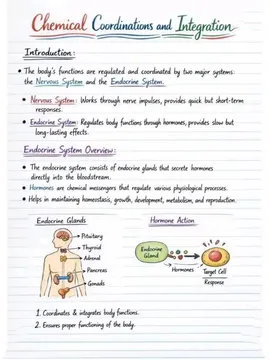 Chemical Coordinations and Integration
Introduction:
• The body's functions are regulated and coordinated by two major systems:
the Nervous System and the Endocrine System.
• Nervous System: Works through nerve impulses, provides quick but short-term
responses.
• Endocrine System: Regulates body functions through hormones, provides slow but
long-lasting effects.
Endocrine System Overview:
• The endocrine system consists of endocrine glands that secrete hormones
directly into the bloodstream.
• Hormones are chemical messengers that regulate various physiological processes.
• Helps in maintaining homeostasis, growth, development, metabolism, and reproduction.
Endocrine Glands
Pituitary
Thyroid
Adrenal
Pancreas
Gonads
Hormone Action
Endocrine
Gland
Hormones
Target Cell
Response
1. Coordinates & integrates body functions.
2. Ensures proper functioning of the body.